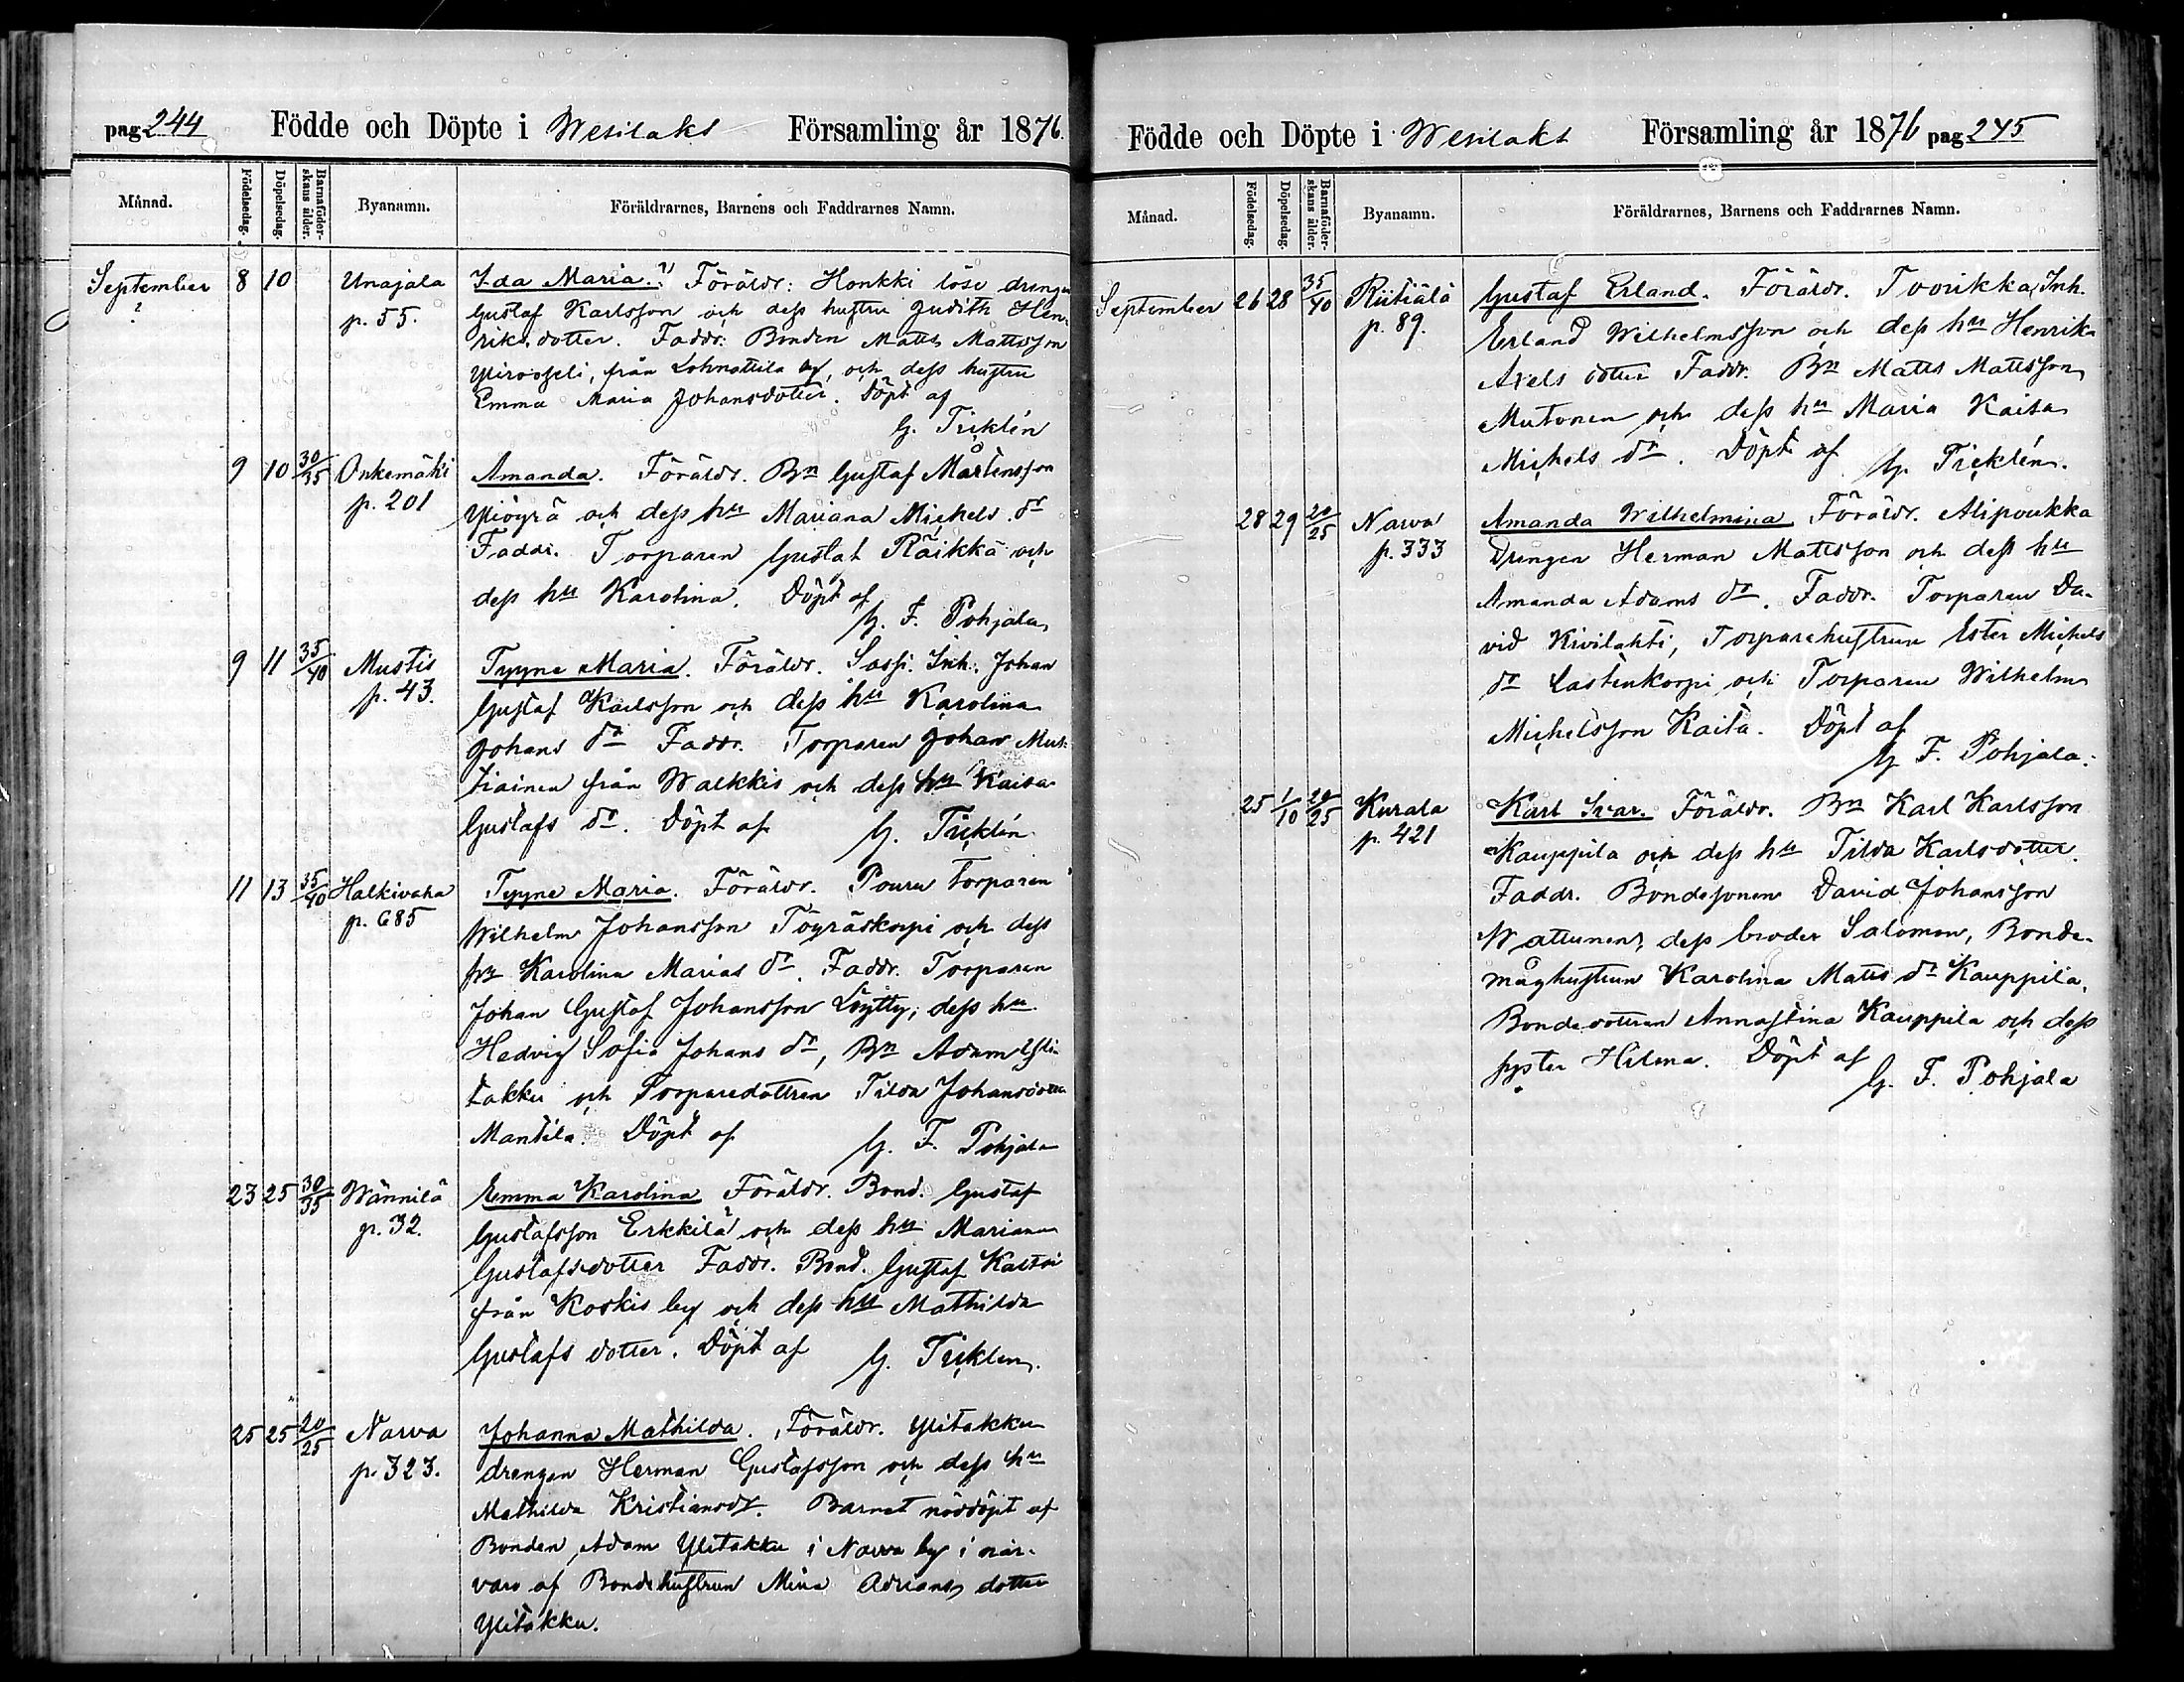 pag. 244 Födde och Döpte i Wesilaks Församling år 1876.
Månad. Födelsedag. Döpelsedag. Barnaföderskans ålder. Byanamn. Föräldrarnes, Barnens och Faddrarnes Namn.
September 8 10 Unajala Ida Maria. ?) Föräldr: Honkki löse drengen
? p. 55. Gustaf Karlsson och dess hustru Judith Hen-
riks dotter. Faddr: Bonden Matts Mattsson
från by, och dess hustru
Emma Maria Johansdotter. Döpt af
G. Tricklén
9 10 30/35 Onkemäki Amanda. Föräldr. Bn Gustaf Mårtensson
p. 201 Yliöyrä och dess hu Mariana Michels dr
Faddr. Torparen Gustaf Räikkä och
dess hu Karolina. Döpt af
G. F. Pohjala
9 11 35/40 Mustis Tyyne Maria. Föräldr. Sassi Inh. Johan
p. 43. Gustaf Karlsson och dess hu Karolina
Johans dr Faddr. Torparen Johan Mus-
tiainen från Walkkis och dess hu Kaisa
Gustafs dr. Döpt af G. Tricklén
11 13 35/40 Halkivaha Tyyne Maria. Föräldr. Pouru Torparen
p. 685 Wilhelm Johansson Töyräskorpi och dess
hu Karolina Marias dr. Faddr. Torparen
Johan Gustaf Johansson Löytty, dess hu
Hedvig Sofia Johans dr, Bn Adam Yli-
takku och Torparedottren Tilda Johansdotter
Mantila. Döpt af G. F. Pohjala
23 25 30/35 Wännilä Emma Karolina Föräldr. Bond. Gustaf
p. 32. Gustafsson Erkkilä och dess hu Mariana
Gustafsdotter Faddr. Bond. Gustaf
från Koskis by och dess hu Mathilda
Gustafs dotter. Döpt af G. Tricklén.
25 25 20/25 Narva Johanna Mathilda. Föräldr. Ylitakku
p. 323. drengen Herman Gustafsson och dess hu
Mathilda Kristiansdr. Barnet nöddöpt af
Bonden Adam Ylitakku i Narva by i när-
varo af Bondehustrun Mina Adrians dotter
Ylitakku.
Födde och Döpte i Wesilaks Församling år 1876 pag. 245
Månad. Födelsedag. Döpelsedag. Barnaföderskans ålder. Byanamn. Föräldrarnes, Barnens och Faddrarnes Namn.
September 26 28 35/40 Riitiälä Gustaf Erland. Föräldr. Tvorikka, Inh.
p. 89. Erland Wilhelmsson och dess hu Henrika
Axels dotter Faddr. Bn Matts Mattsson
Mutonen och dess hu Maria Kaisa
Michels dr. Döpt af G. Tricklén.
28 29 20/25 Narva Amanda Wilhelmina Föräldr. Alipoukka
p. 333 Drengen Herman Mattsson och dess hu
Amanda Adams dr. Faddr. Torparen Da-
vid Kivilahti, Torparehustrun Ester Michels
dr Lastenkorpi och Torparen Wilhelm
Michelsson Kaita. Döpt af
G. F. Pohjala.
25 1/10 20/25 Kurala Karl Ivar. Föräldr. Bn Karl Karlsson
p. 421 Kauppila och dess hu Tilda Karlsdotter.
Faddr. Bondesonen David Johansson
Wattunen, dess broder Salomon, Bonde-
måghustrun Karolina Matts dr Kauppila,
Bondedottren Annastina Kauppila och dess
syster Hilma. Döpt af
G. F. Pohjala